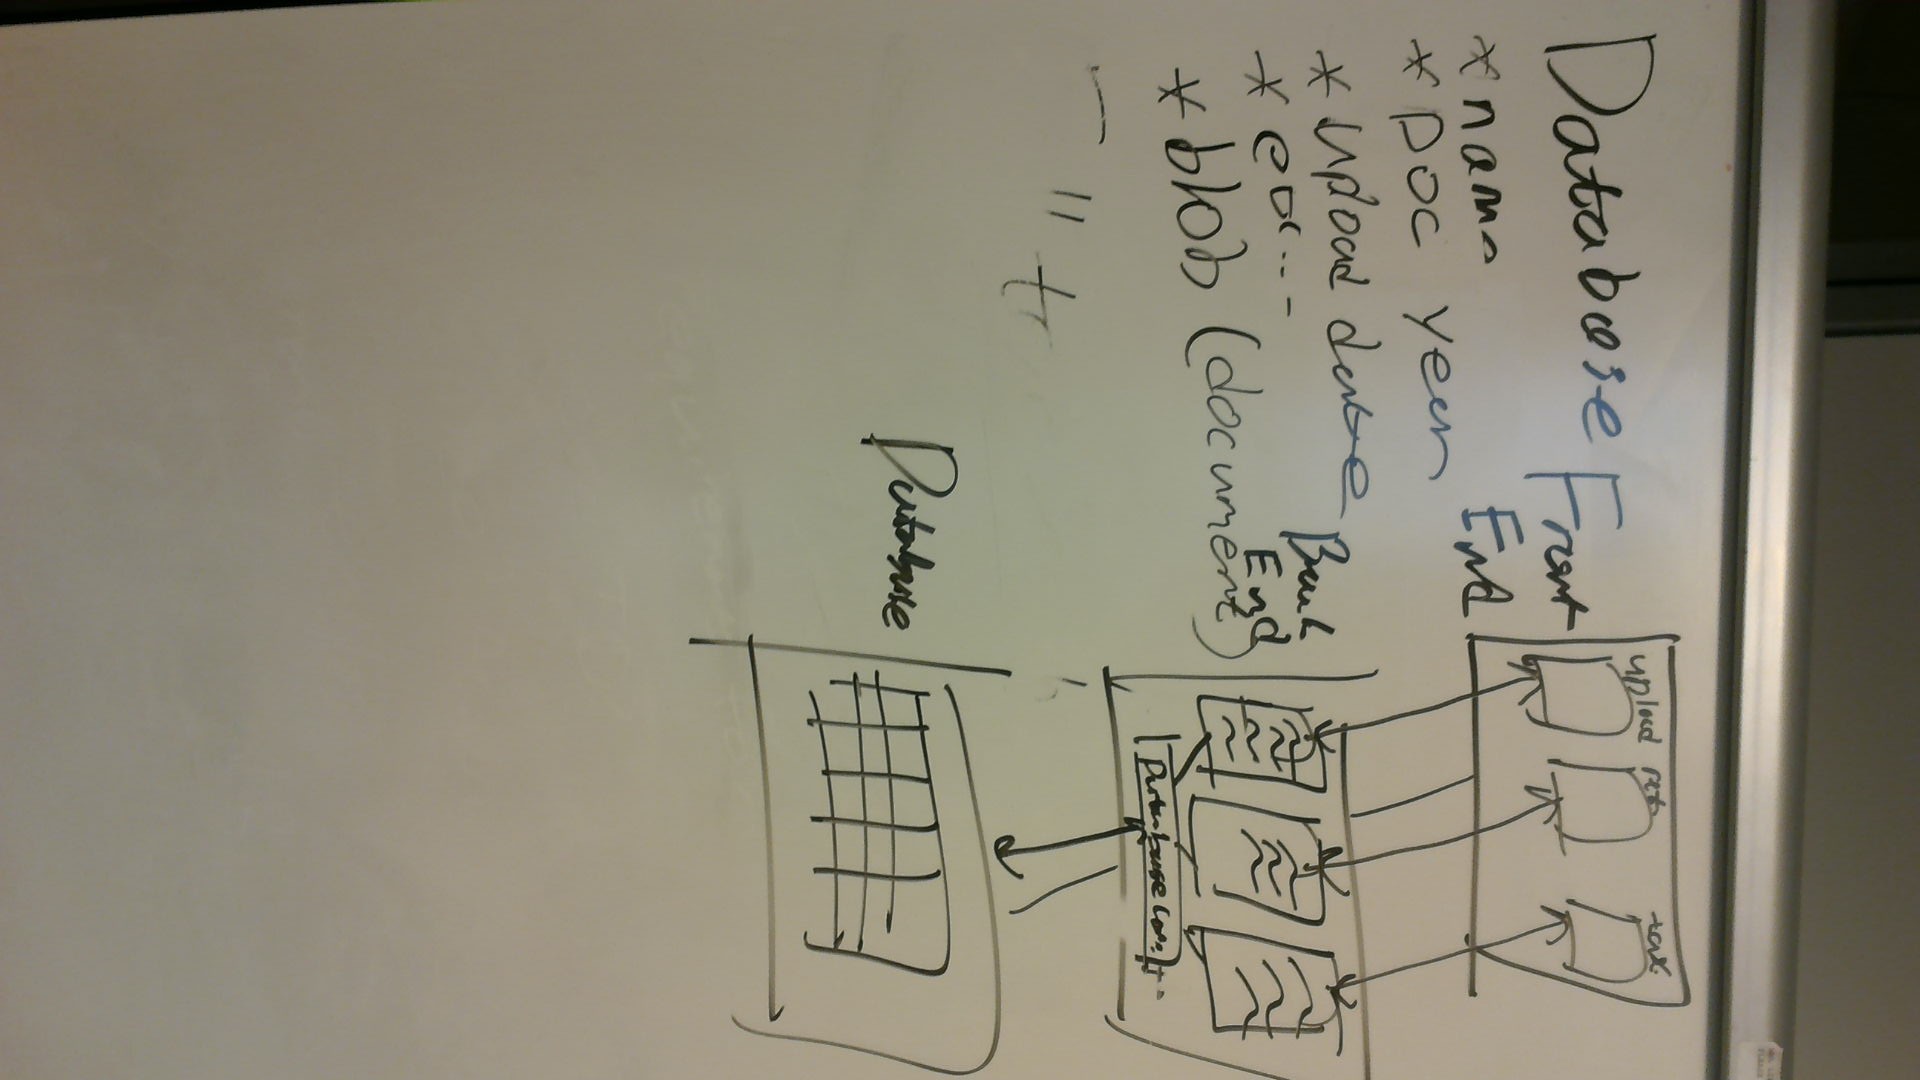 Database
* name
* Doc year
* upload date
* etc...
* blob (document)
Front
End
upload
tax
Back
End
Database
Database